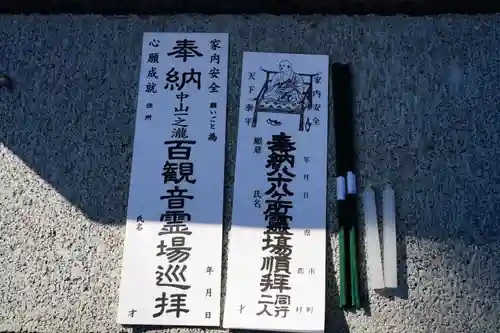 家内安全
願いごと 為
奉納 中山一之瀧 百観音霊場巡拝
心願成就
住所
氏名
年 月 日
才
家内安全
天下泰平
奉納八十八ヶ所霊場順拝 同行二人
願意
氏名
年 月 日
県
市
郡
町
村
才